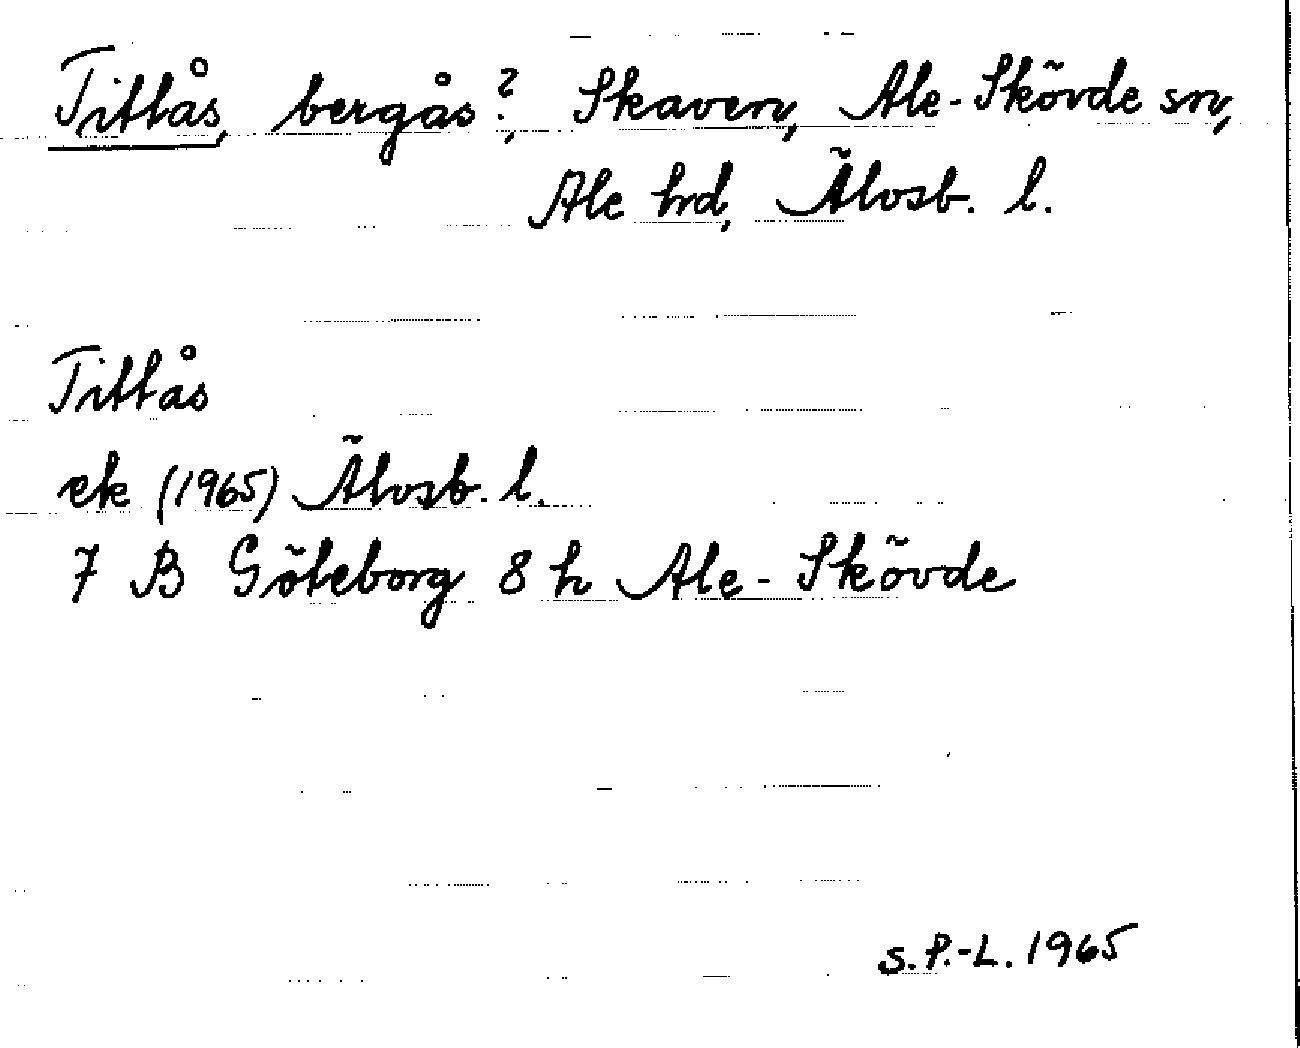 Tittås, bergås?, Skaven, Ale-Skövde sn,
Ale hrd, Älvsb. l.
Tittås
ek (1965) Älvsb. l.
7 B Göteborg 8 h Ale-Skövde
S.P.-L. 1965